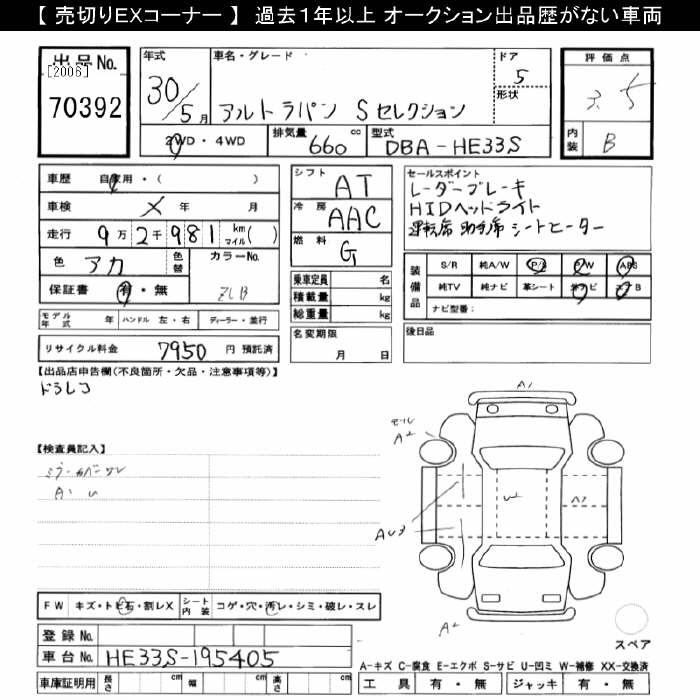 【 売切りEXコーナー 】 過去1年以上 オークション出品歴がない車両
出品No.
[2006]
70392
年式
30/5月
車名・グレード
アルトラパン Sセレクション
ドア
5
形状
2WD・4WD
排気量
660 cc
型式
DBA-HE33S
評価点
3.5
内装
B
車歴 自家用・( )
車検 年 月
走行 9万2千981 km マイル( )
色 アカ 色替
カラーNo.
ZLB
保証書 有・無
シフト
AT
冷房
AAC
燃料
G
乗車定員 名
積載量 kg
総重量 kg
セールスポイント
レーダーブレーキ
HIDヘッドライト
運転席 助手席 シートヒーター
装備品
S/R 純A/W P/S P/W ABS
純TV 純ナビ 革シート 社ナビ エアB
ナビ型番:
モデル年式 年 ハンドル 左・右 ディーラー・並行
名変期限
月 日
後日品
リサイクル料金 7950 円 預託済
【出品店申告欄(不良箇所・欠品・注意事項等)】
ドラレコ
A1
モール
A2
【検査員記入】
ミラーカバーワレ
A1 U
U2
AU3
A2
FW キズ・トビ石・割レX
シート内装 コゲ・穴・汚レ・シミ・破レ・スレ
登録No.
車台No. HE33S-195405
スペア
A-キズ C-腐食 E-エクボ S-サビ U-凹ミ W-補修 XX-交換済
車庫証明用 長さ cm 幅 cm 高さ cm
工具 有・無 ジャッキ 有・無